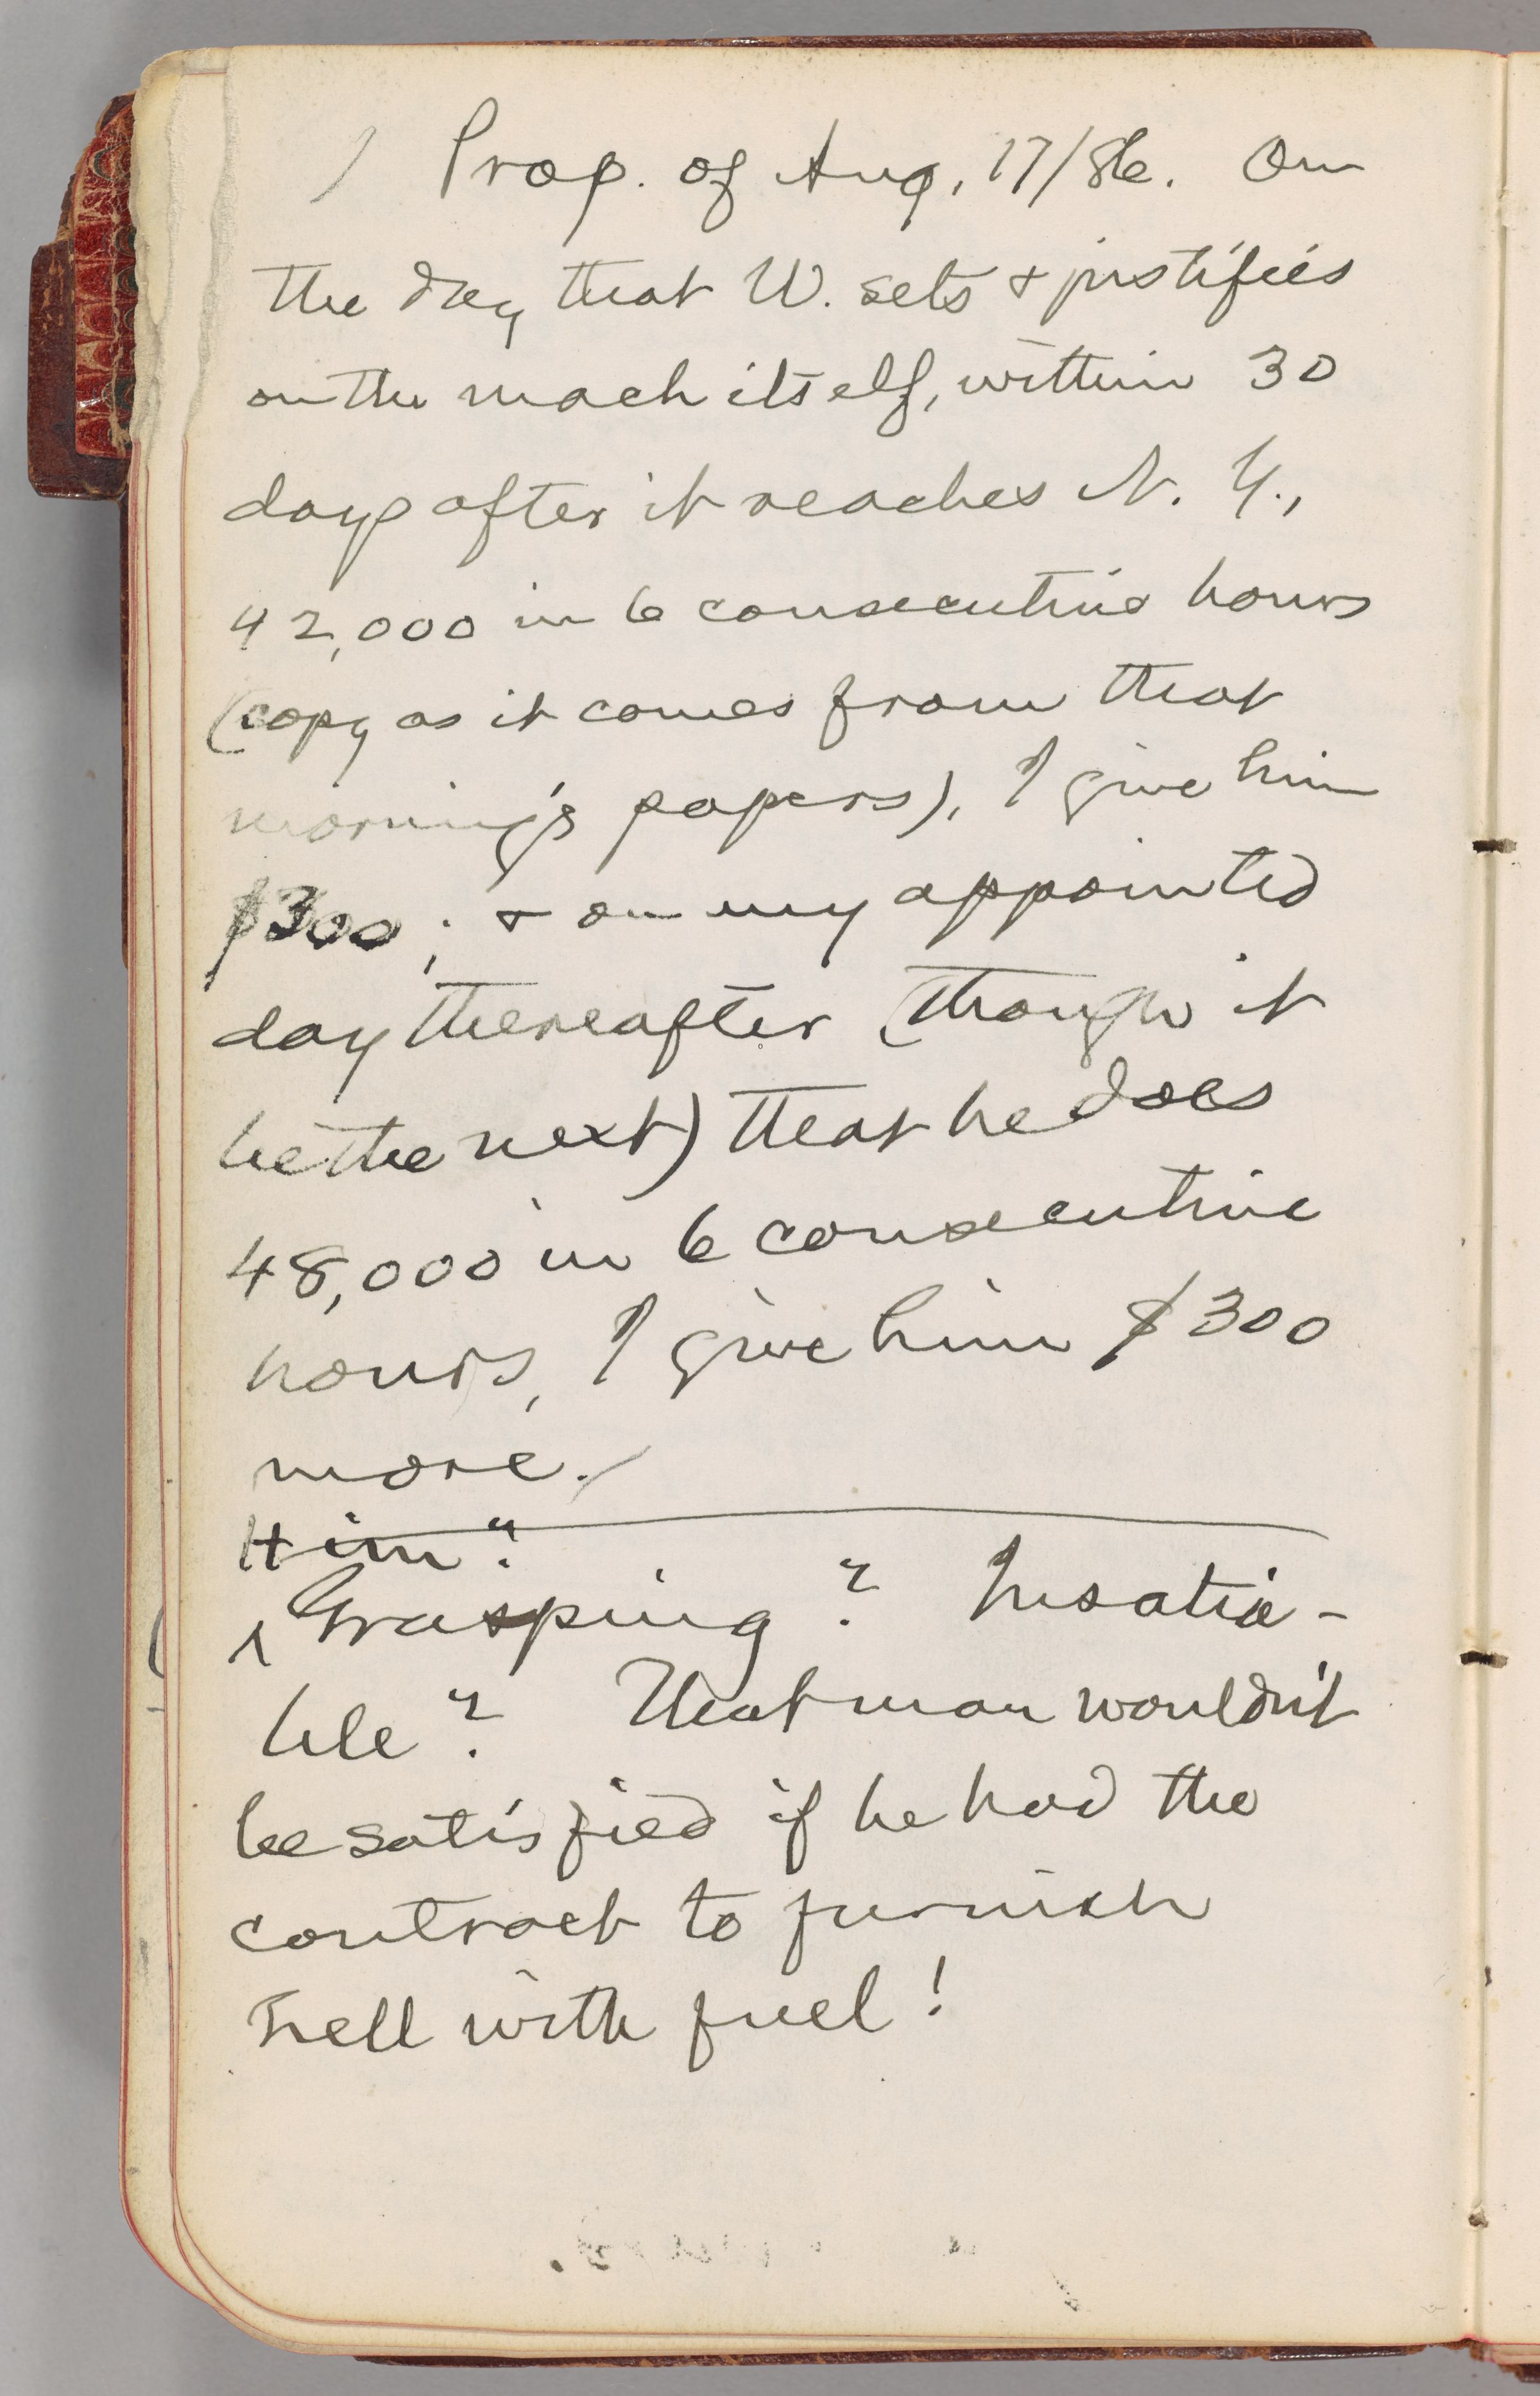 / Prop. of Aug, 17/86. On
the day that W. sets & justifies
on the mach itself, within 30
days after it reaches N. Y.,
42,000 in 6 consecutive hours
(copy as it comes from that
morning's papers), I give him
$300; & on my appointed
day thereafter (though it
be the next) that he does
48,000 in 6 consecutive
hours, I give him $300
more./
Him?
^ Grasping? Insatia-
ble? That man wouldn't
be satisfied if he had the
contract to furnish
hell with fuel!